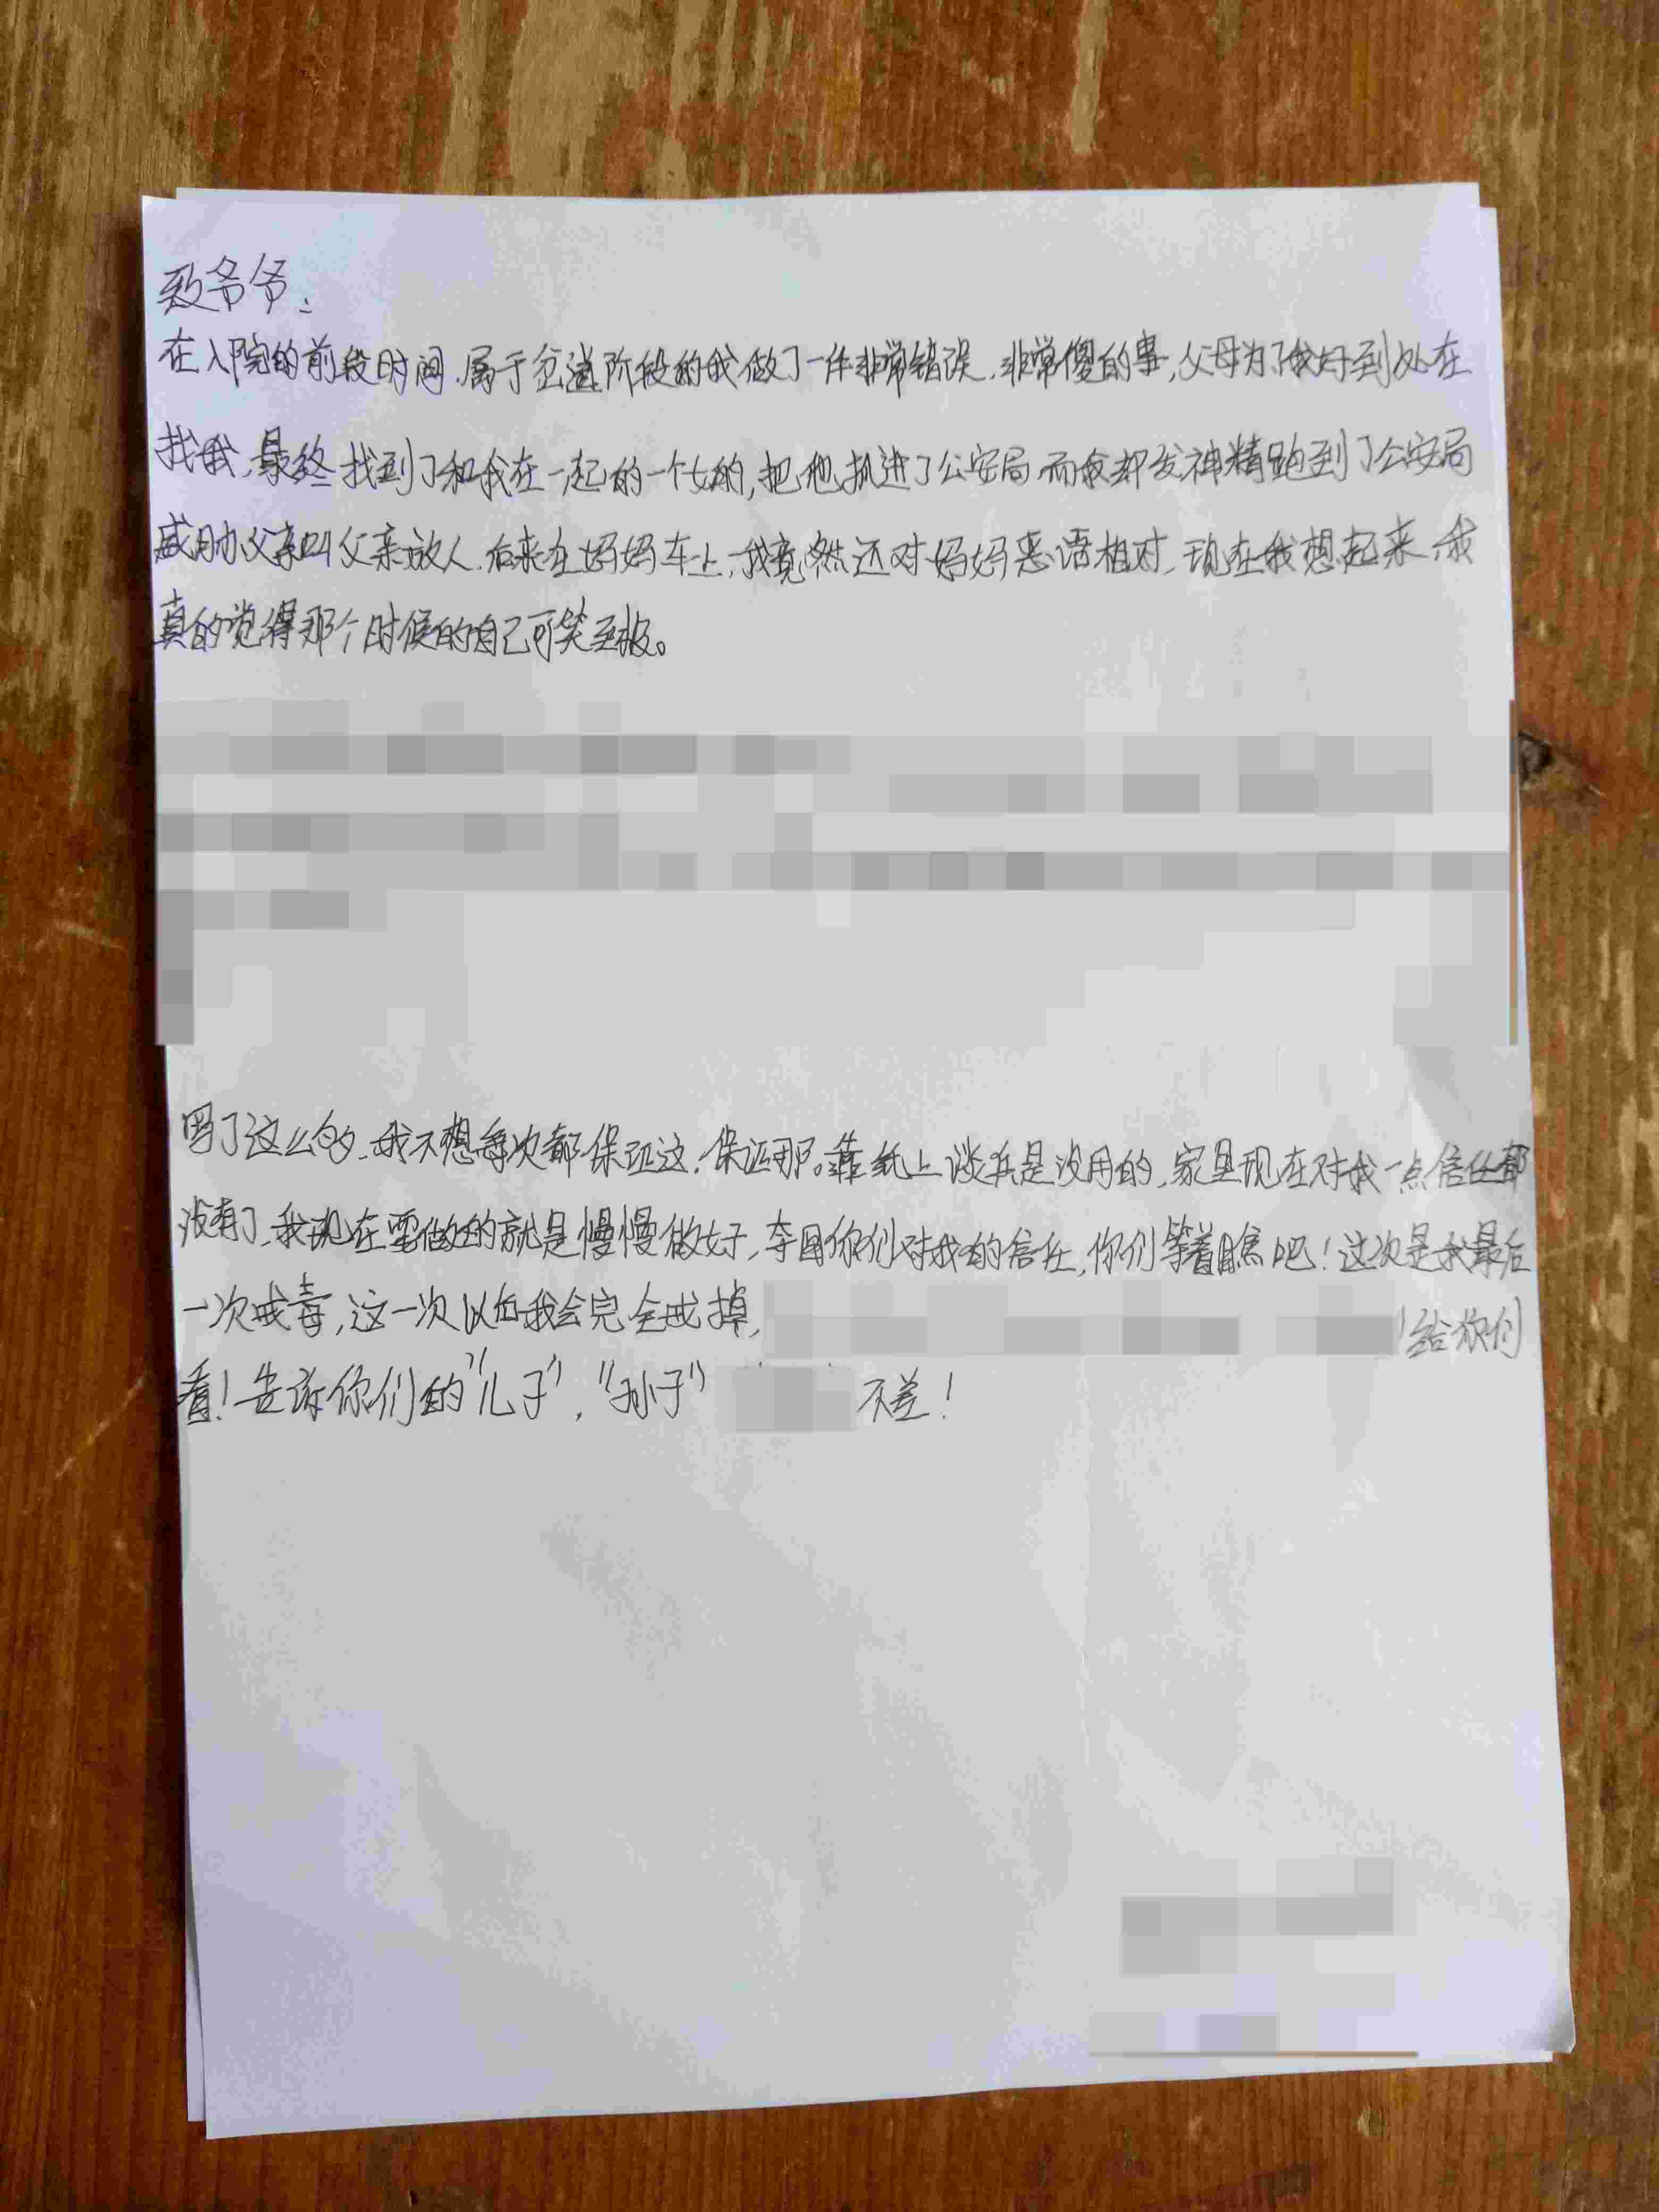 致爷爷:
在入院的前段时间.属于岔道阶段的我做了一件非常错误.非常傻的事,父母为了我好到处在
找我,最终找到了和我在一起的一个女的,把他抓进了公安局.而我却发神精跑到了公安局
威胁父亲叫父亲放人.后来在妈妈车上,我竟然还对妈妈恶语相对,现在我想起来.我
真的觉得那个时候的自己可笑至极。
写了这么多.我不想每次都保证这.保证那。靠纸上谈兵是没用的,家里现在对我一点信任都
没有了,我现在要做的就是慢慢做好,夺回你们对我的信任,你们等着瞧吧!这次是我最后
一次戒毒,这一次以后我会完全戒掉, 给你们
看!告诉你们的"儿子","孙子" 不差!